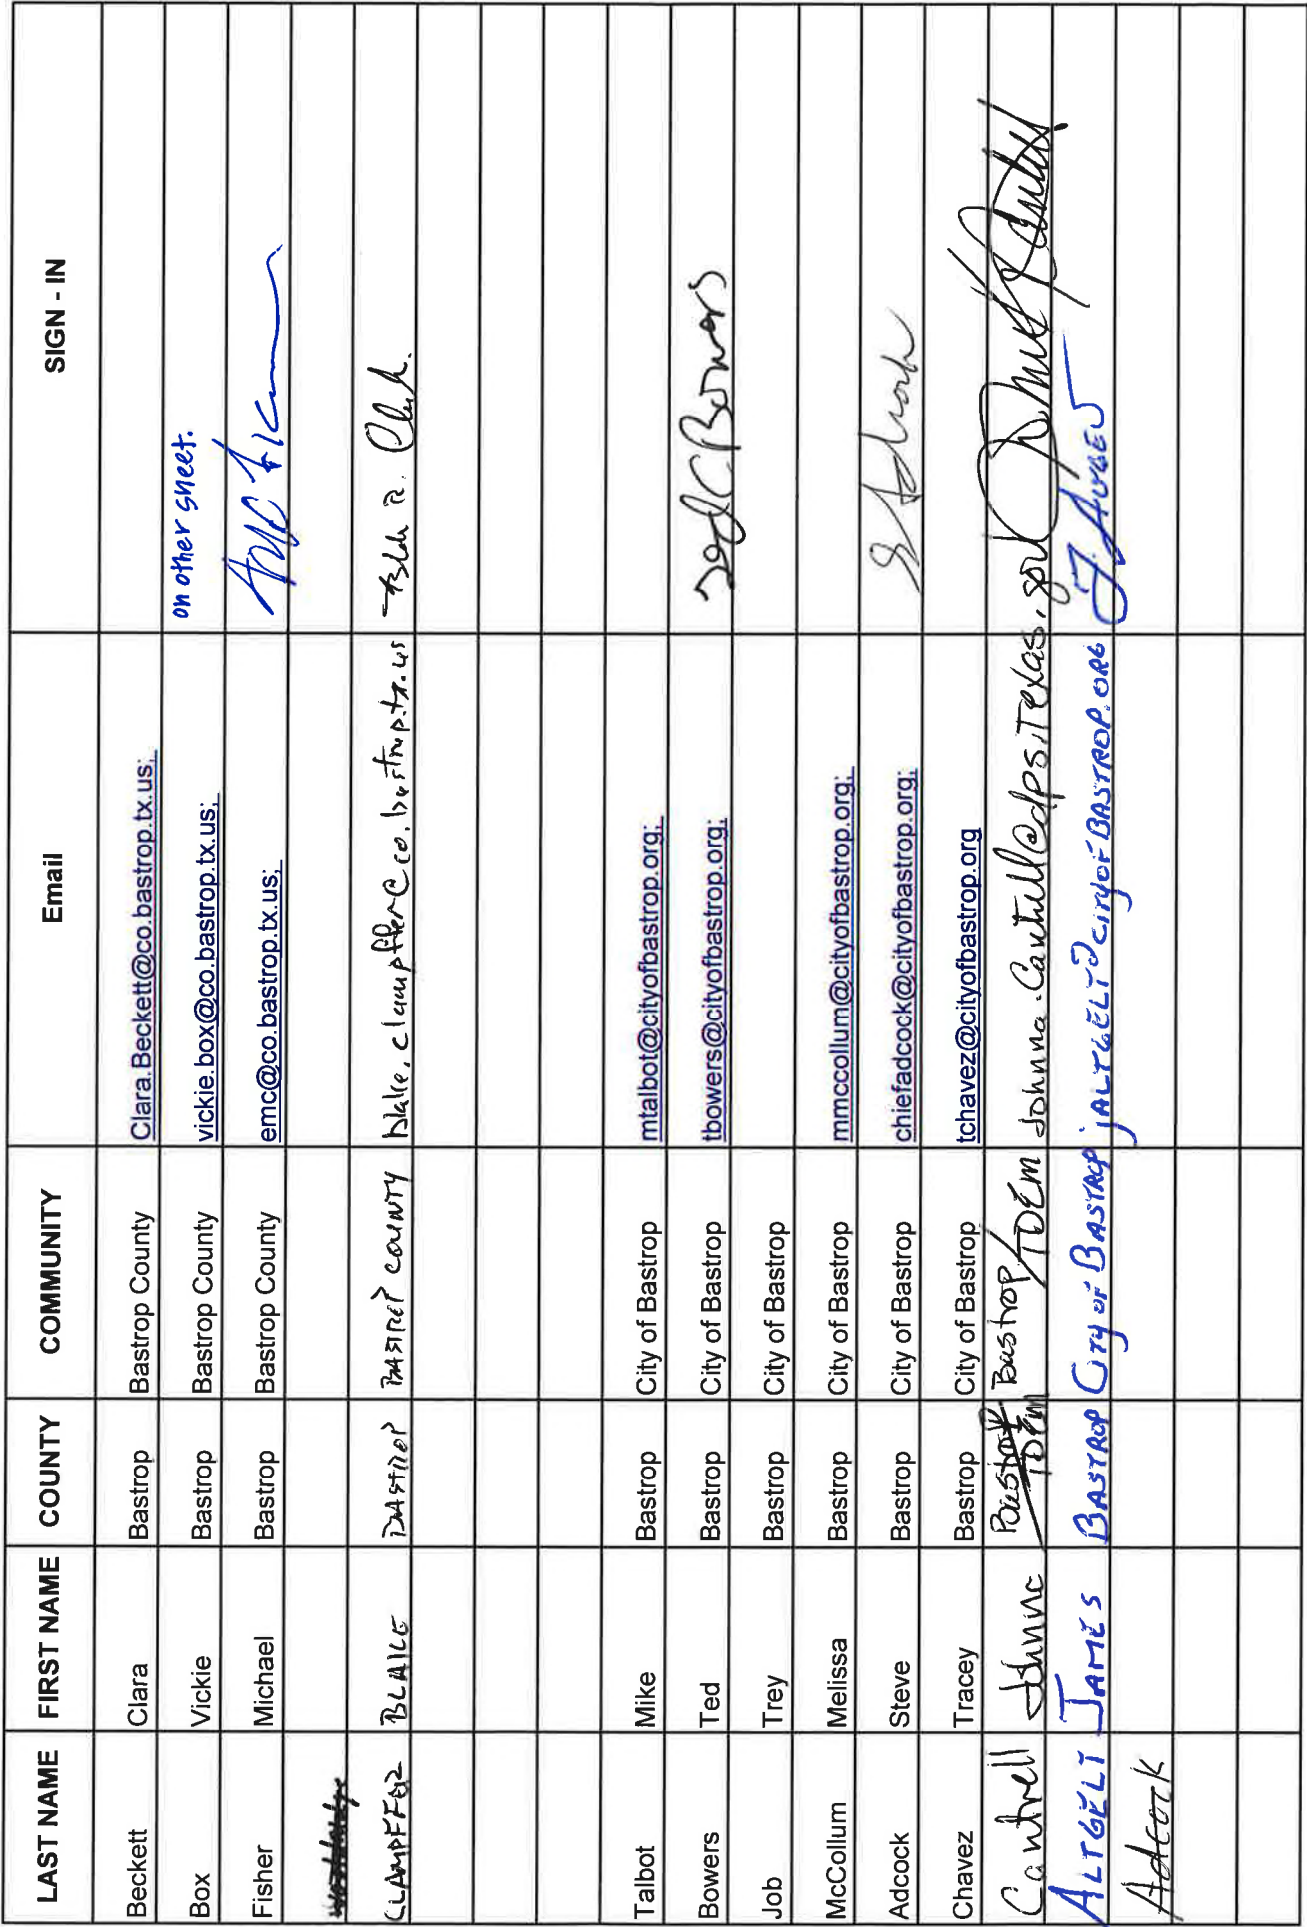 LAST NAME FIRST NAME COUNTY COMMUNITY Email SIGN - IN
Beckett Clara Bastrop Bastrop County Clara.Beckett@co.bastrop.tx.us;
Box Vickie Bastrop Bastrop County vickie.box@co.bastrop.tx.us; on other sheet.
Fisher Michael Bastrop Bastrop County emc@co.bastrop.tx.us;
CLAMPFFER BLAKE BASTROP BASTROP COUNTY blake.clampffer@co.bastrop.tx.us
Talbot Mike Bastrop City of Bastrop mtalbot@cityofbastrop.org;
Bowers Ted Bastrop City of Bastrop tbowers@cityofbastrop.org; Bowers
Job Trey Bastrop City of Bastrop
McCollum Melissa Bastrop City of Bastrop mmccollum@cityofbastrop.org;
Adcock Steve Bastrop City of Bastrop chiefadcock@cityofbastrop.org; S Adcock
Chavez Tracey Bastrop City of Bastrop tchavez@cityofbastrop.org
Cantrell Johnna Bastrop TDEM Bastrop/TDEM Johnna.Cantrell@dps.texas.gov
ALTGELT JAMES BASTROP CITY OF BASTROP jALTGELT@CITYOFBASTROP.ORG
Adcock